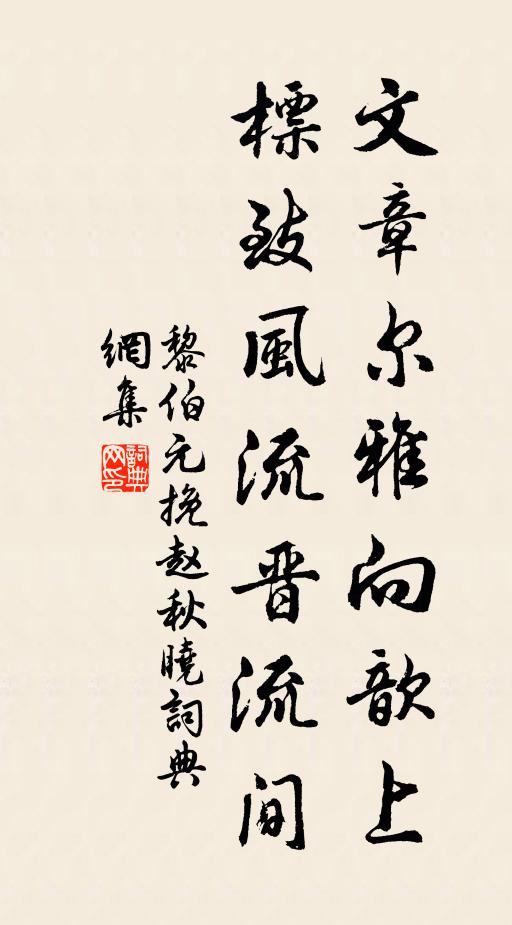 文章尔雅向歆上
標致風流晋流间
黎伯元挽赵秋曉詞典
網集
詞典
网印